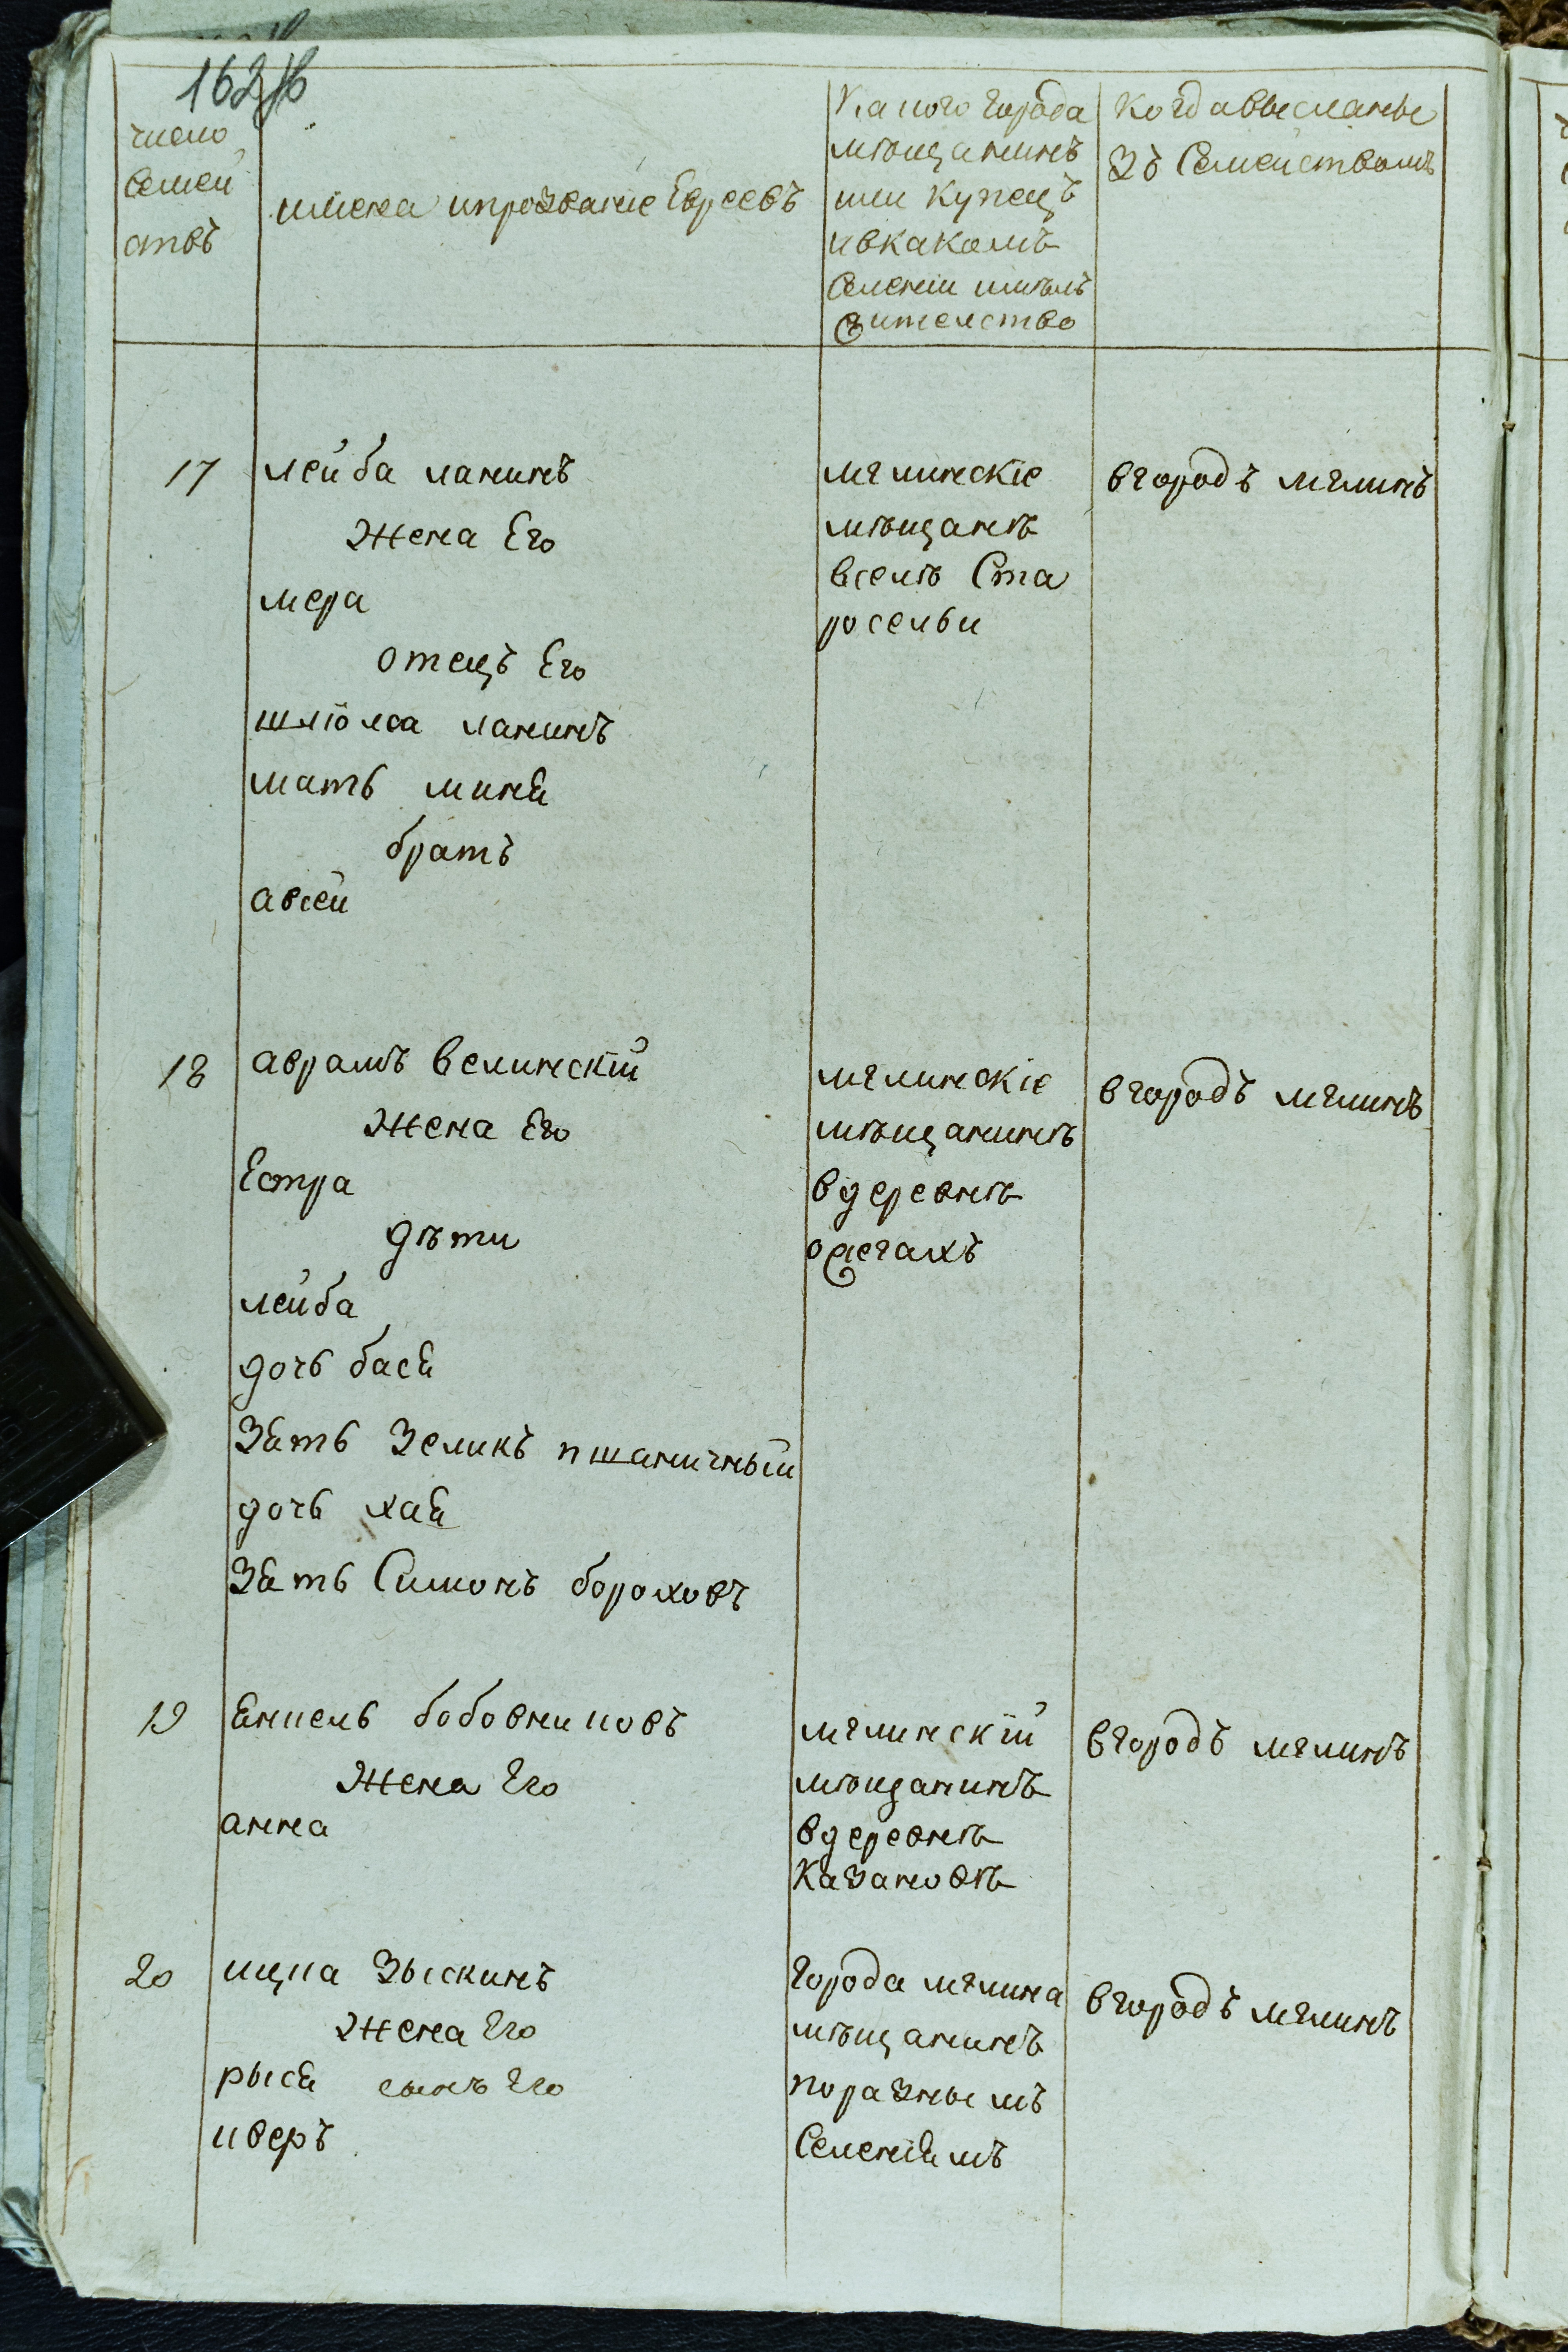 162 об
число
семей
ствъ
имена ипрозвание Евреевъ
какого города
мѣщанинъ
или купецъ
ивкакомъ
селении имѣлъ
жителство
когда высланы
зъ семействомъ
17
лейба ланинъ
жена Его
мера
отецъ Его
шліома ланинъ
мать миня
братъ
авсей
мглинскіе
мѣщанѣ
вселѣ Ста
росельи
вгородъ мглинъ
18
аврамъ велинскій
жена Его
Естра
дѣти
лейба
дочь бася
зять зеликъ пшаничный
дочь хая
зять Симонъ бороховъ
мглинскіе
мѣщанинъ
вдеревнѣ
вгородъ мглинъ
19
янкель бобовниковъ
жена Его
анна
мглинскій
мѣщанинъ
вдеревнѣ
казановкѣ
вгородъ мглинъ
20
ицка зыскинъ
жена Его
рыся сынъ Его
иверъ
города мглина
мѣщанинъ
поразнымъ
Селениямъ
вгородъ мглинъ